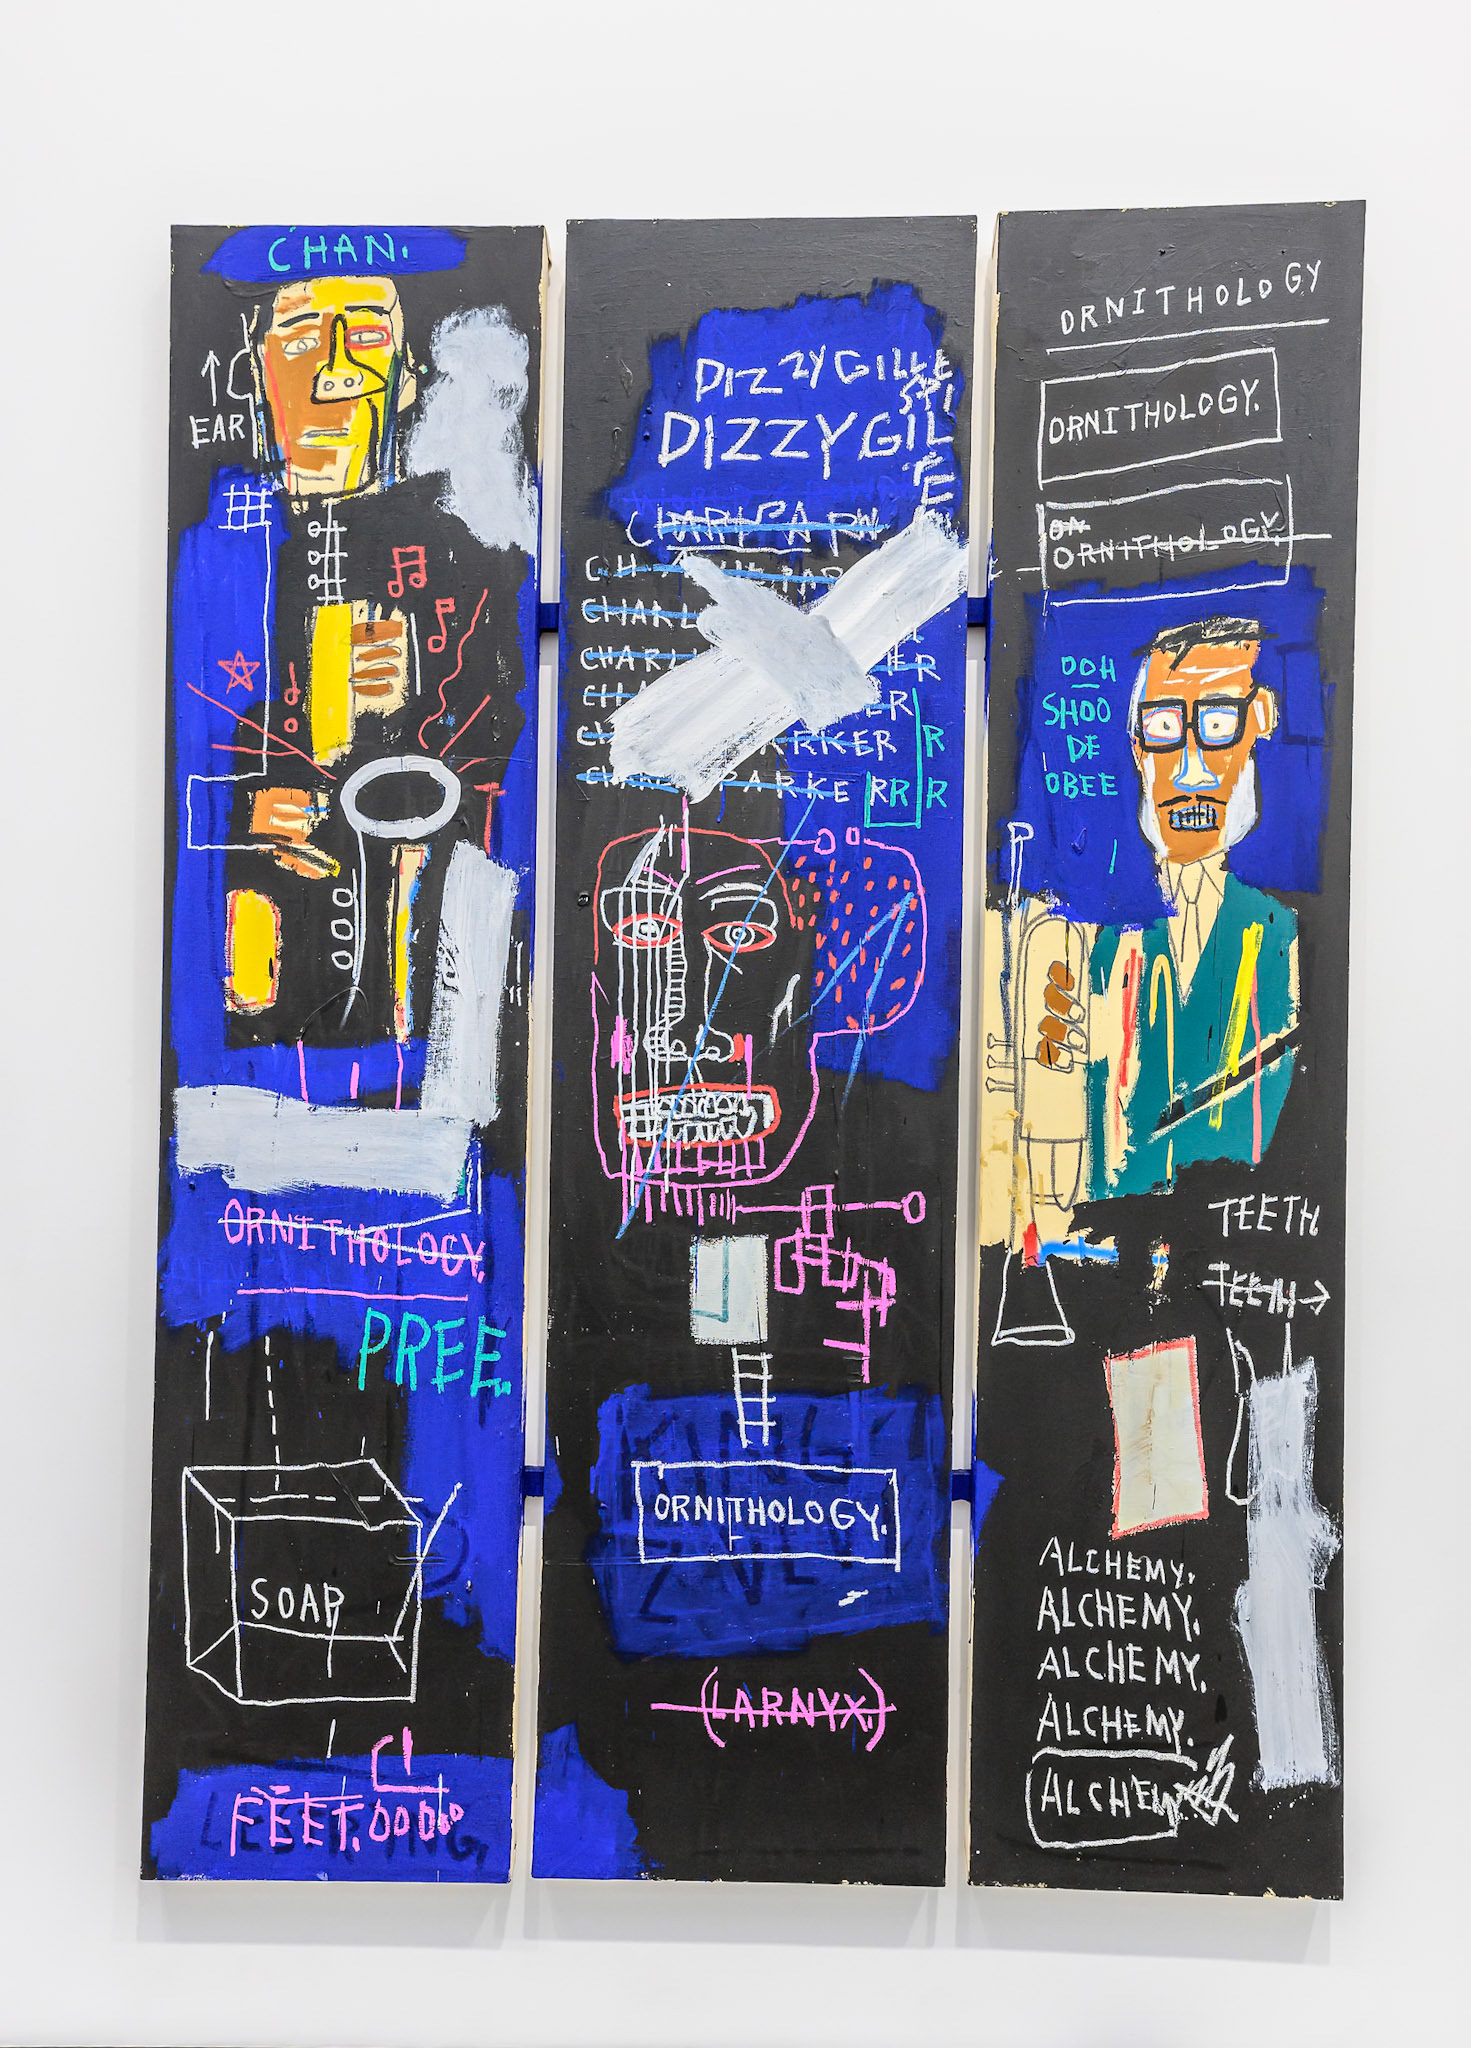 CHAN.
EAR
ORNITHOLOGY.
PREE
SOAP
FEET.
DIZZYGILLE
SPI
DIZZYGIL
CHAR
CHARL
CHARL
PARKER
PARKERRR
R
R
ORNITHOLOGY.
(LARNYX.)
ORNITHOLOGY
ORNITHOLOGY.
ON
ORNITHOLOGY.
OOH
SHOO
DE
OBEE
TEETH.
TEETH
ALCHEMY.
ALCHEMY.
ALCHEMY.
ALCHEMY.
ALCHEMY